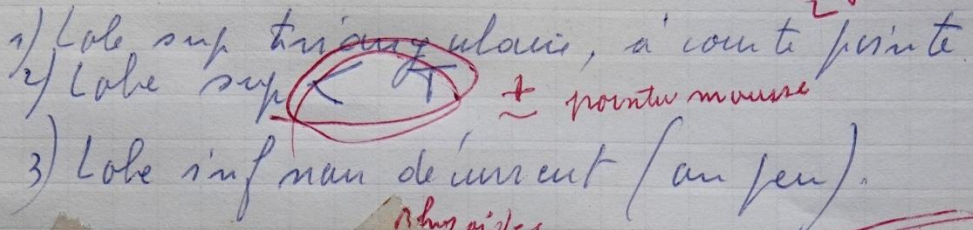 1) Lobe sup triangulaire, à courte pointe
2) Lobe sup < T ± pointu mousse
3) Lobe inf non décurrent (ou peu).